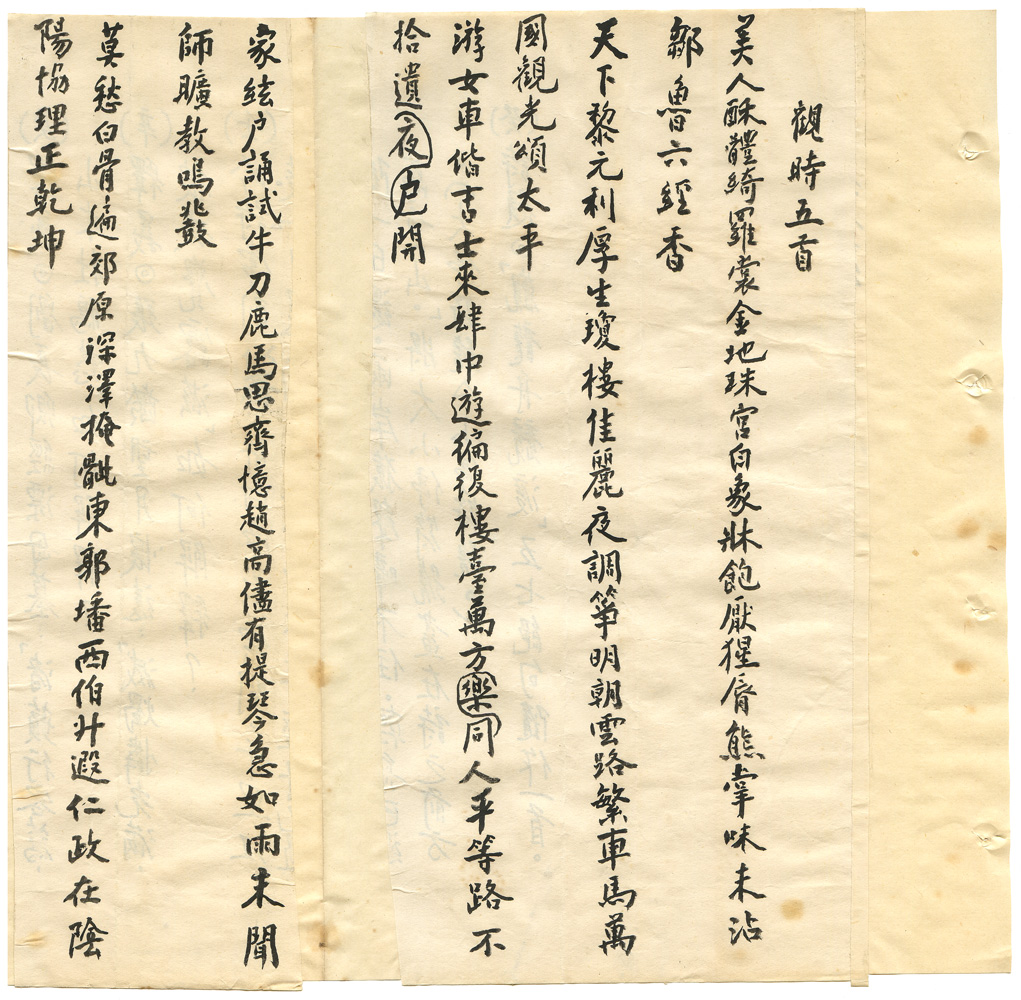 觀時五首
美人酥體綺羅裳金地珠宮白象牀飽厭猩脣熊掌味未沾
鄒魯六經香
天下黎元利厚生瓊樓佳麗夜調箏明朝雲路繁車馬萬
國觀光頌太平
游女車偕吉士來肆中遊徧復樓臺萬方樂同人平等路不
拾遺夜戶開
家絃户誦試牛刀鹿馬思齊憶趙高儘有提琴急如雨未聞
師曠教鳴鼗
莫愁白骨遍郊原深澤掩骴東郭墦西伯升遐仁政在陰
陽協理正乾坤